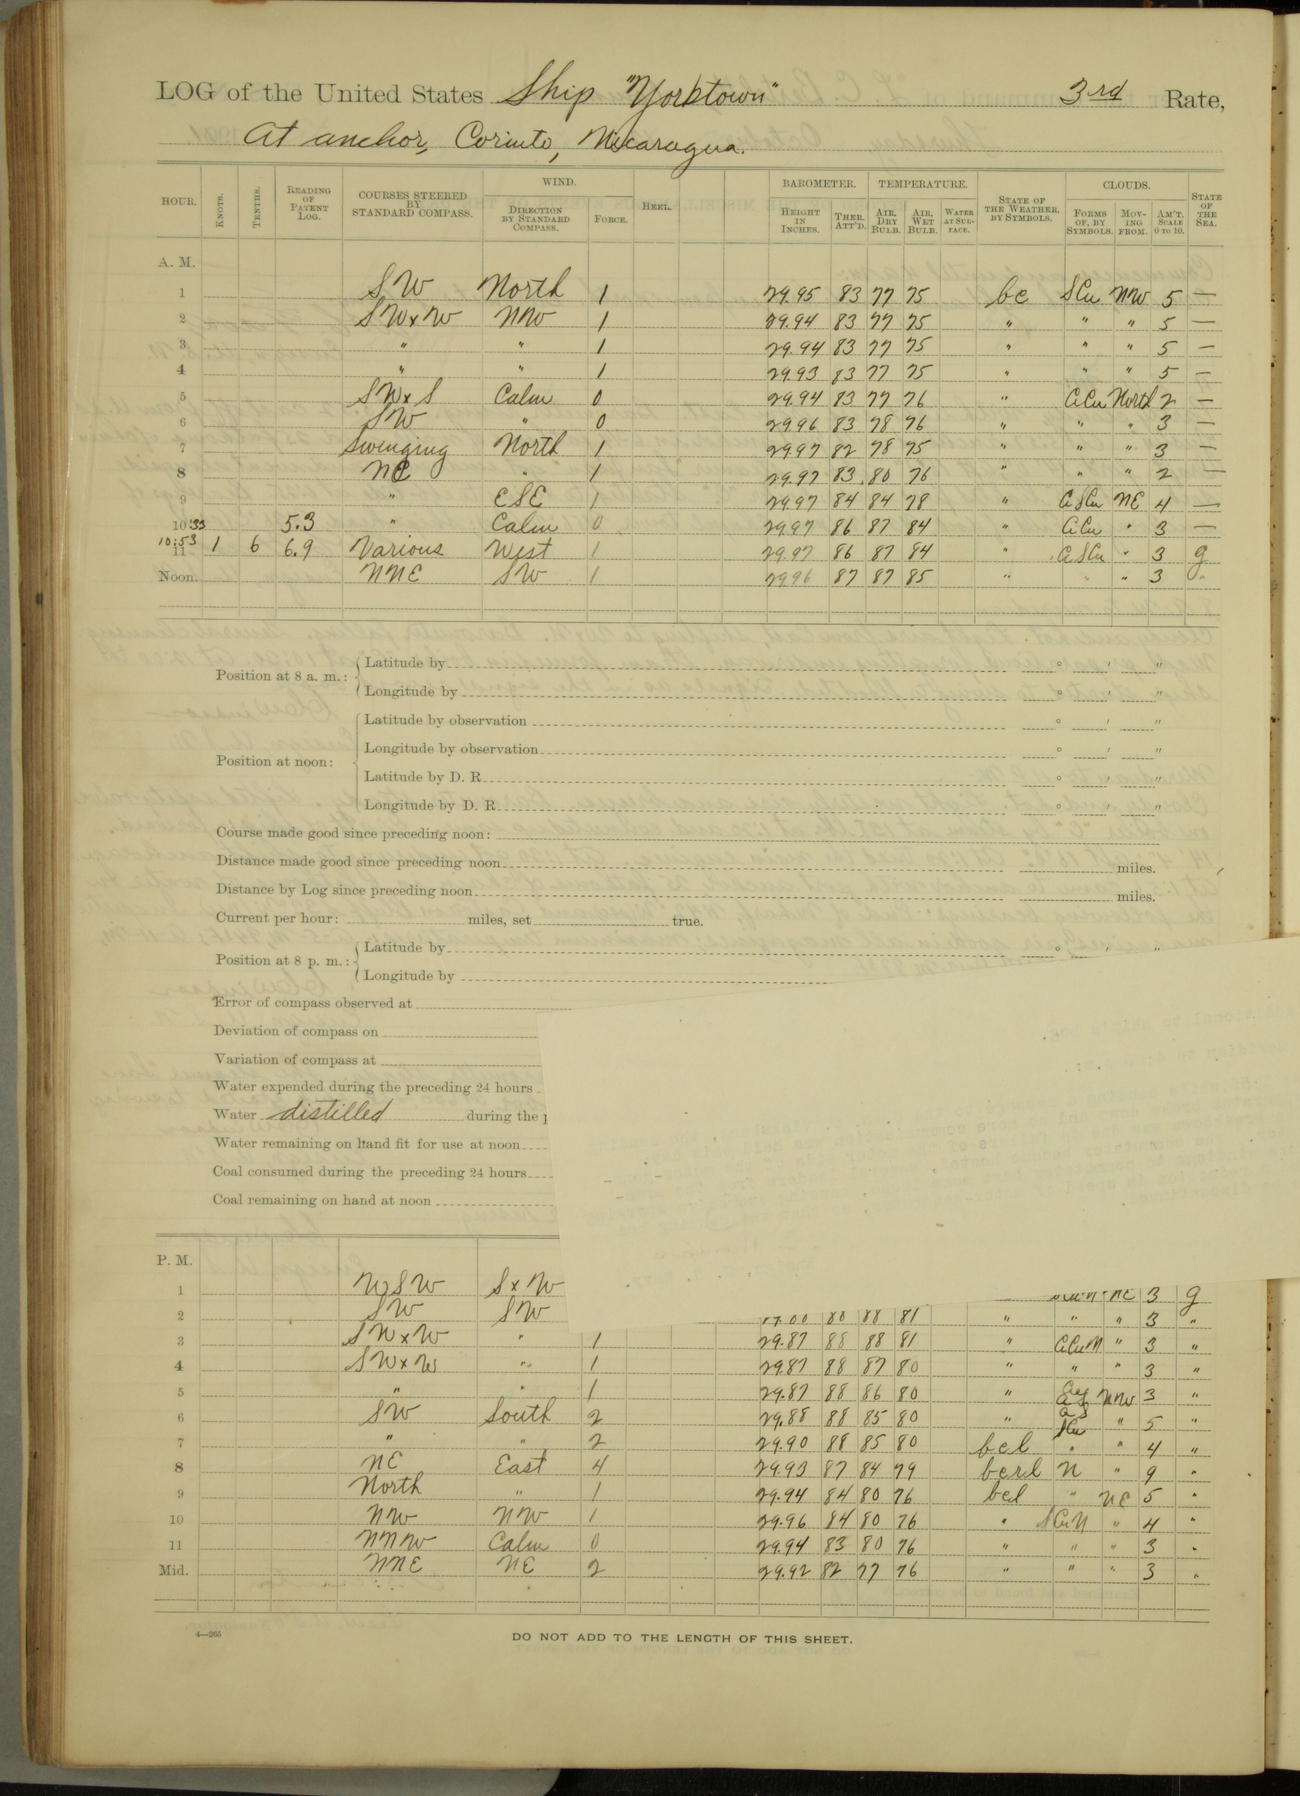 LOG of the United States Ship "Yorktown" 3rd Rate,
At anchor, Corinto, Nicaragua.
HOUR. KNOTS. TENTHS. READING OF PATENT LOG. COURSES STEERED BY STANDARD COMPASS. WIND. DIRECTION BY STANDARD COMPASS. FORCE. HEEL. BAROMETER. HEIGHT IN INCHES. THER. ATT'D. TEMPERATURE. AIR, DRY BULB. AIR, WET BULB. WATER AT SURFACE. STATE OF THE WEATHER, BY SYMBOLS. CLOUDS. FORMS OF, BY SYMBOLS. MOVING FROM. AM'T. SCALE 0 TO 10. STATE OF THE SEA.
A. M.
1 SW North 1 29.95 83 77 75 bc SCu NW 5 —
2 SWxW NW 1 29.94 83 77 75 " " " 5 —
3 " " 1 29.94 83 77 75 " " " 5 —
4 " " 1 29.93 83 77 75 " " " 5 —
5 SWxS Calm 0 29.94 83 77 76 " ACu North 2 —
6 SW " 0 29.96 83 78 76 " " " 3 —
7 Swinging North 1 29.97 82 78 75 " " " 3 —
8 NE " 1 29.97 83 80 76 " " " 2 —
9 " ESE 1 29.97 84 84 78 " ASCu NE 4 —
10:33 5.3 " Calm 0 29.97 86 87 84 " ACu " 3 —
10:53 11 1 6 6.9 Various West 1 29.97 86 87 84 " ASCu " 3 g
Noon. NNE SW 1 29.96 87 87 85 " " " 3 "
Position at 8 a. m.: Latitude by ° ′ ″
Longitude by ° ′ ″
Position at noon: Latitude by observation ° ′ ″
Longitude by observation ° ′ ″
Latitude by D. R. ° ′ ″
Longitude by D. R. ° ′ ″
Course made good since preceding noon:
Distance made good since preceding noon miles.
Distance by Log since preceding noon miles.
Current per hour: miles, set true.
Position at 8 p. m.: Latitude by ° ′ ″
Longitude by
Error of compass observed at
Deviation of compass on
Variation of compass at
Water expended during the preceding 24 hours
Water distilled during the
Water remaining on hand fit for use at noon
Coal consumed during the preceding 24 hours
Coal remaining on hand at noon
P. M.
1 WSW SxW NE 3 g
2 SW SW 88 81 " " " 3 "
3 SWxW " 1 29.87 88 88 81 " ACuN " 3 "
4 SWxW " 1 29.87 88 87 80 " " " 3 "
5 " " 1 29.87 88 86 80 " NNW 3 "
6 SW South 2 29.88 88 85 80 " SCu " 5 "
7 " " 2 29.90 88 85 80 bcl " " 4 "
8 NE East 4 29.93 87 84 79 bcrl N " 9 "
9 North " 1 29.94 84 80 76 bcl " NE 5 "
10 NW NW 1 29.96 84 80 76 " SCuN " 4 "
11 NNW Calm 0 29.94 83 80 76 " " " 3 "
Mid. NNE NE 2 29.92 82 77 76 " " " 3 "
4—265
DO NOT ADD TO THE LENGTH OF THIS SHEET.